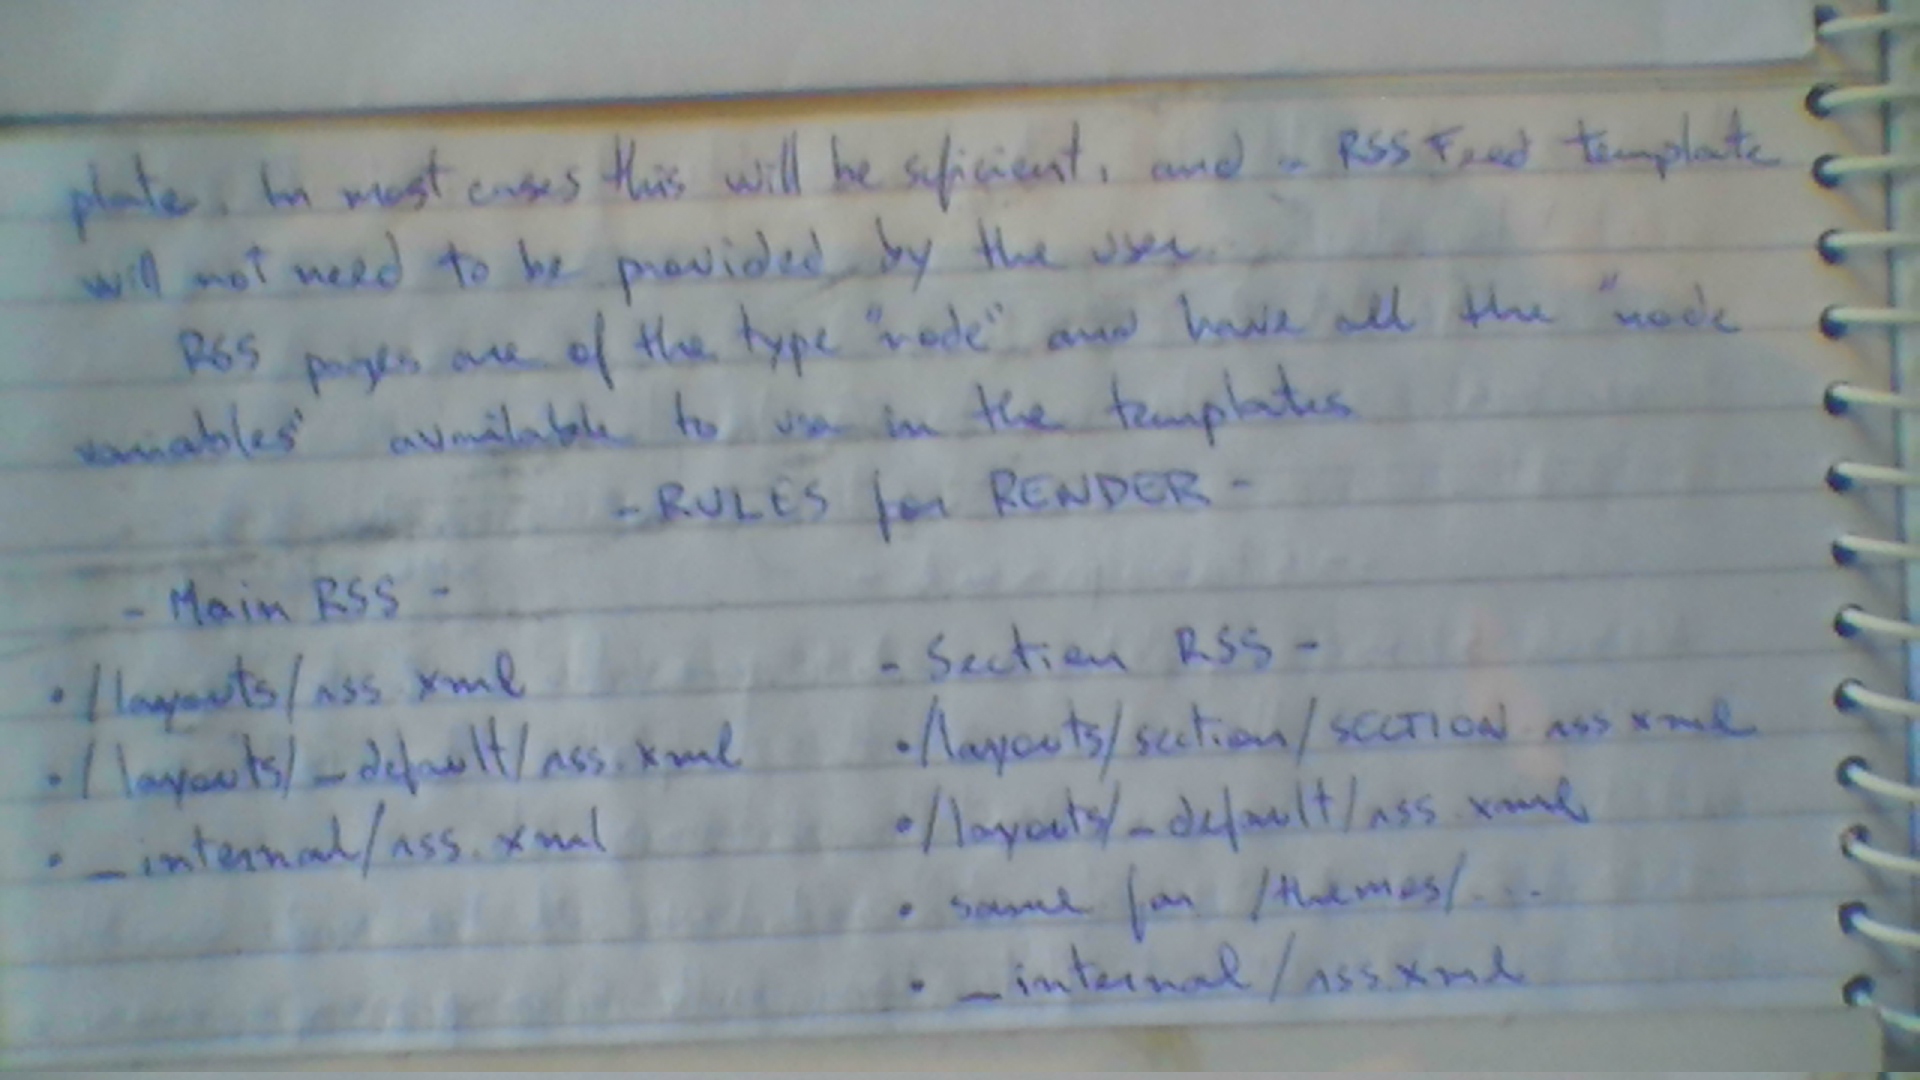 plate. In most cases this will be suficient, and a RSS Feed template
will not need to be provided by the user.
RSS pages are of the type "node" and have all the "node
variables" available to use in the templates
- RULES for RENDER -
- Main RSS -
• /layouts/rss.xml
• /layouts/_default/rss.xml
• _internal/rss.xml
- Section RSS -
• /layouts/section/SECTION.rss.xml
• /layouts/_default/rss.xml
• same for /themes/...
• _internal/rss.xml